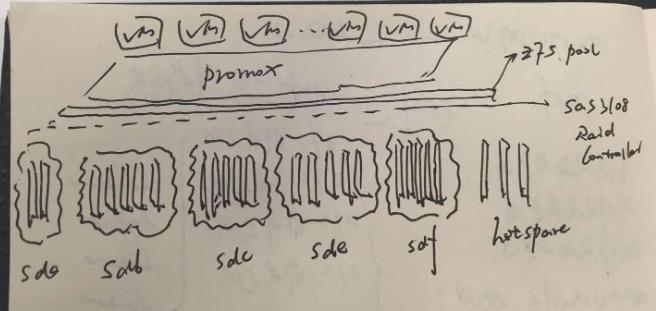 VM VM VM ... VM VM VM
zfs. pool
promox
sas3108
Raid
Controller
sda sdb sdc sde sdf hotspare